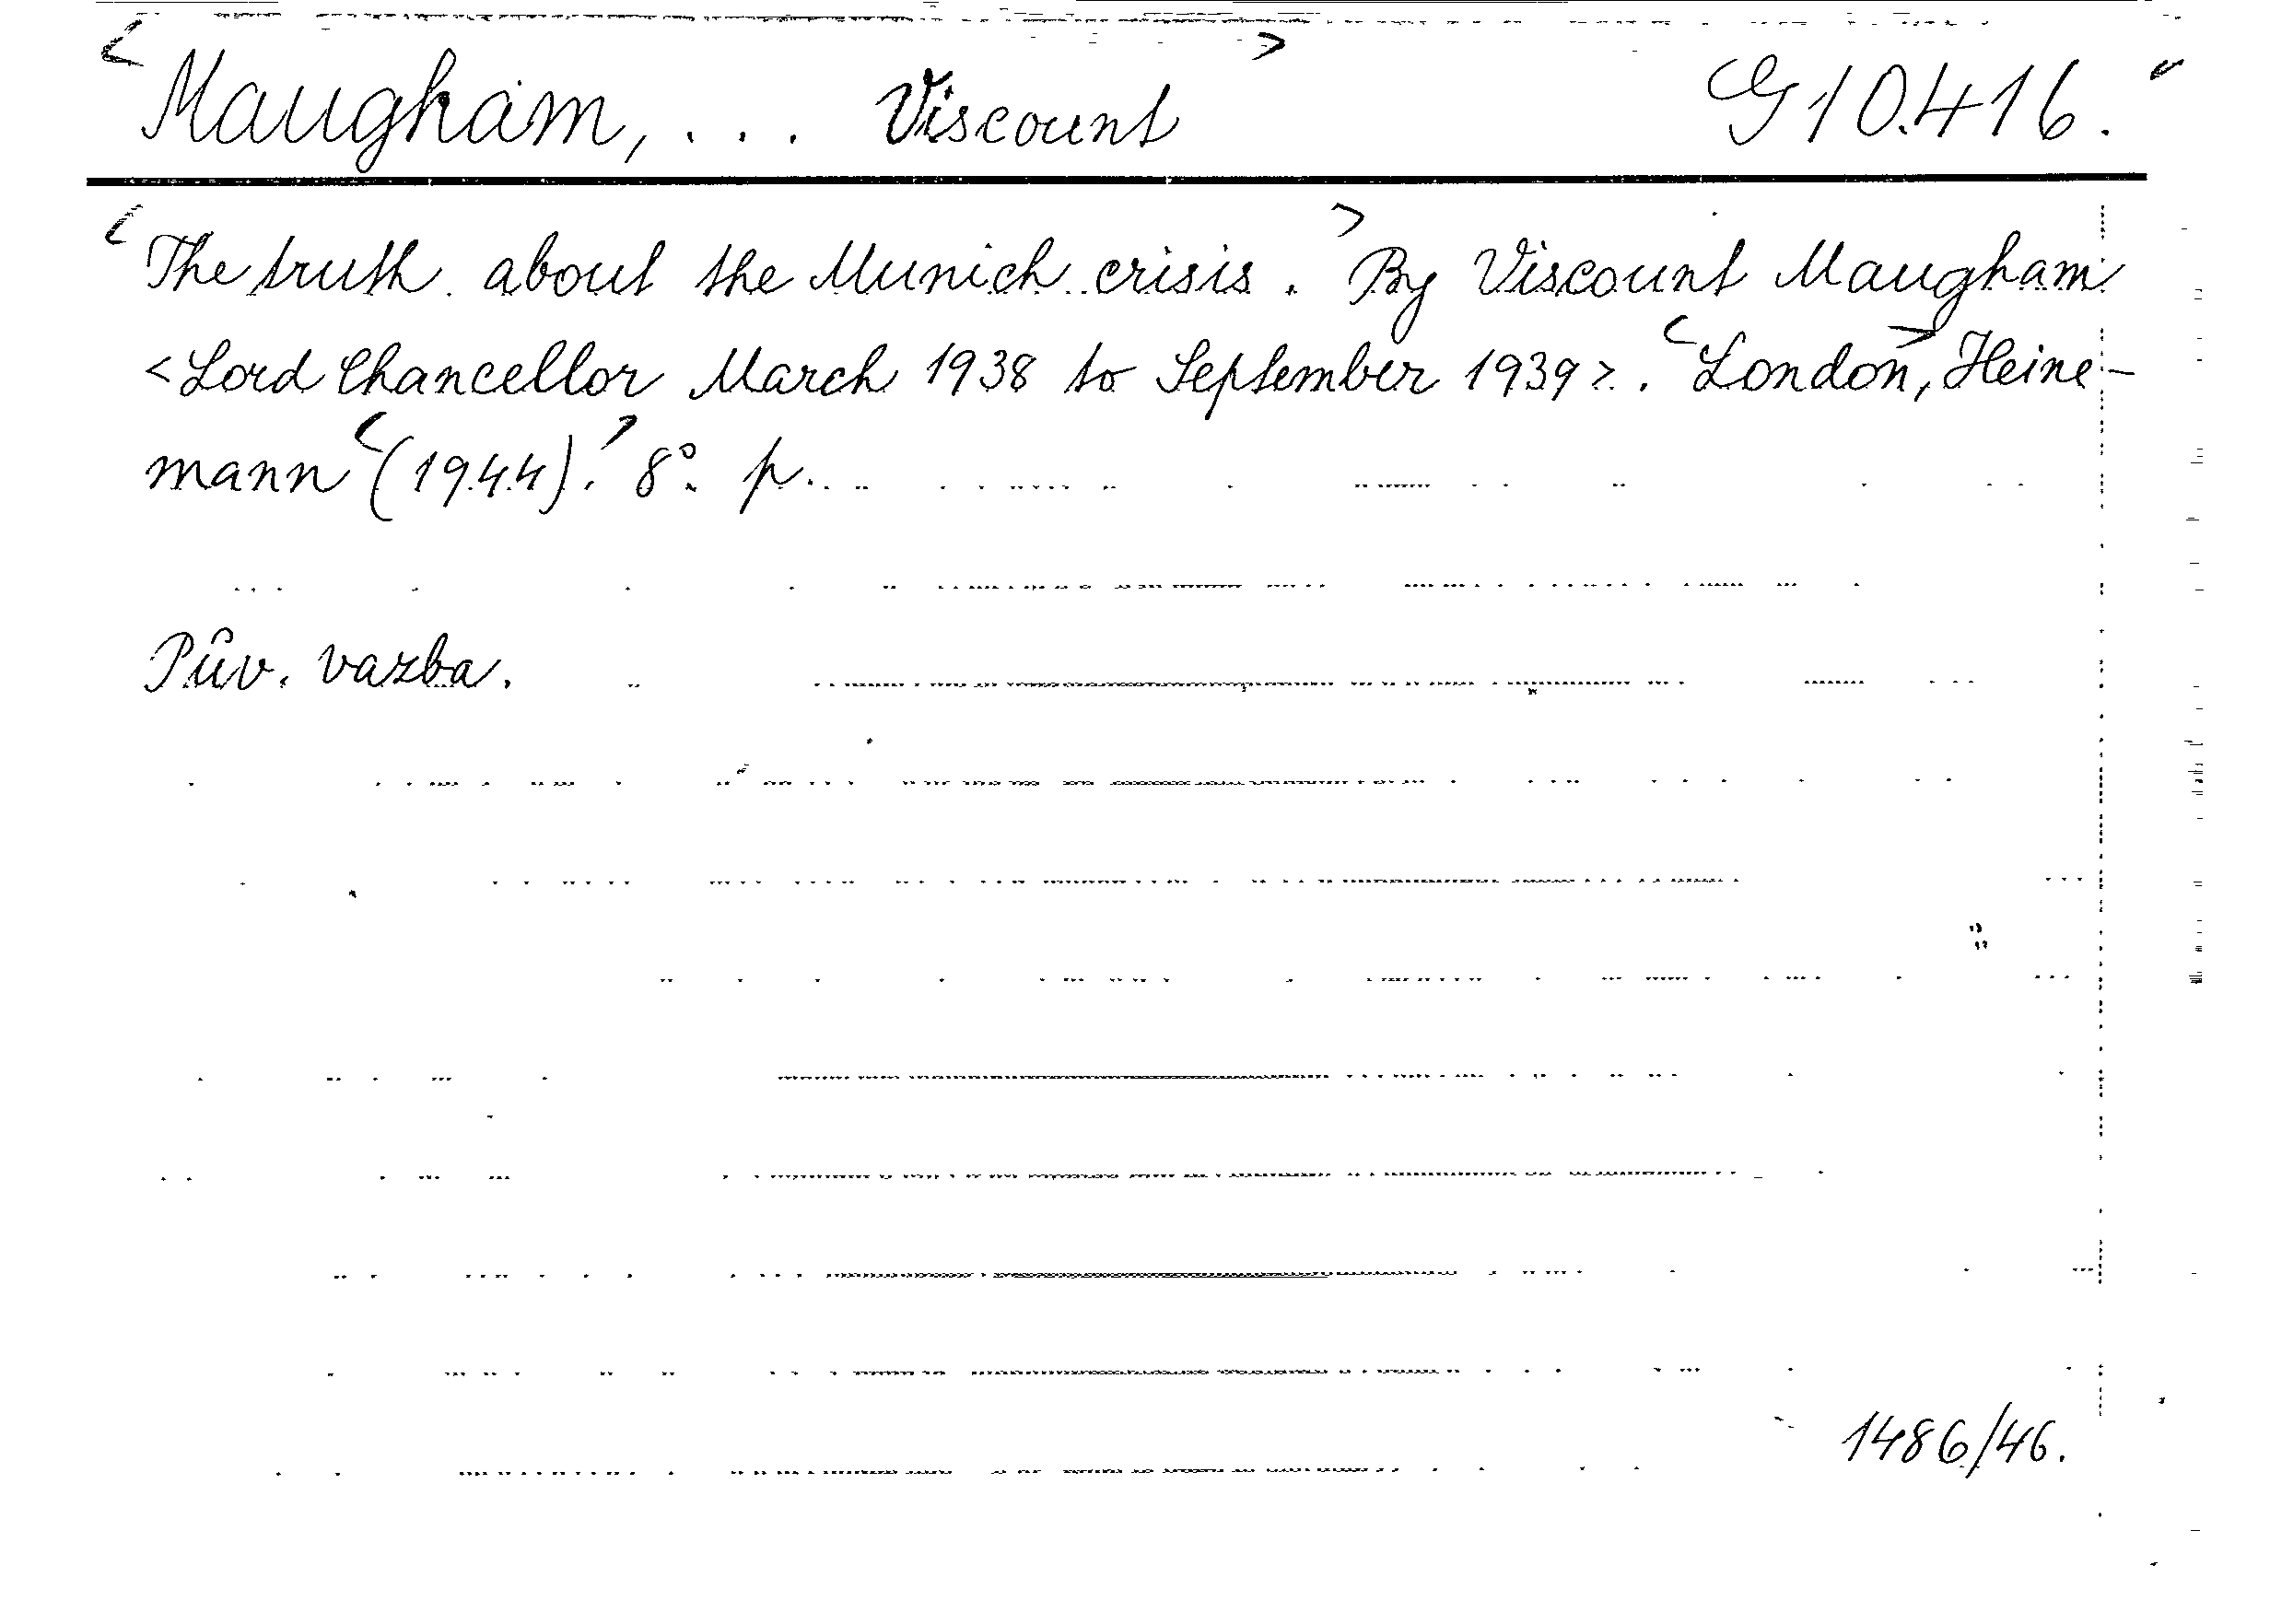 Maugham, ... Viscount G 10.416.
The truth about the Munich crisis. By Viscount Maugham
<Lord Chancellor March 1938 to September 1939>. London, Heine-
mann (1944). 8°. p.
Pův. vazba.
1486/46.